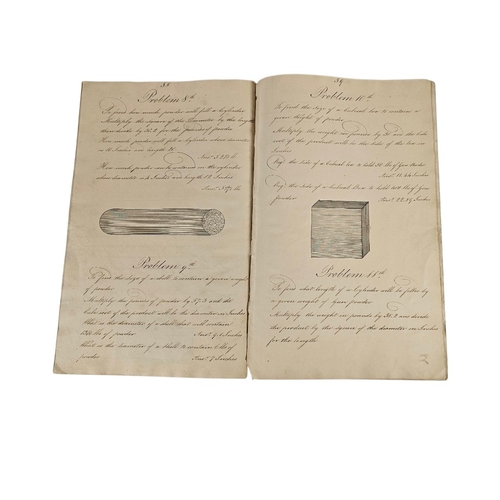 38
Problem 8th
To find how much powder will fill a cylinder
Multiply the square of the Diameter by the length
then divide by 38.2 for the pounds of powder
How much powder will fill a cylinder whose diameter
is Inches and length
Ans.
How much powder will contain in the cylinder
whose diameter is Inches and length 12 Inches
Ans. lb
Problem 9th
To find the size of a shell to contain a given weight
of powder
Multiply the pounds of powder by 57.3 and the
cube root of the product will be the diameter in Inches
What is the diameter of a shell that will contain
lbs of powder Ans. Inches
What is the diameter of a shell to contain lbs of
powder Ans. 7 Inches
39
Problem 10th
To find the size of a cubical box to contain a
given weight of powder
Multiply the weight in pounds by 30 and the cube
root of the product will be the side of the box in
Inches
Req. the side of a cubical box to hold 50 lbs of Gun
Ans. Inches
Req. the side of a cubical box to hold lbs of Gun
powder Ans. Inches
Problem 11th
To find what length of a cylinder will be filled by
a given weight of Gun powder
Multiply the weight in pounds by 38.2 and divide
the product by the square of the diameter in Inches
for the length